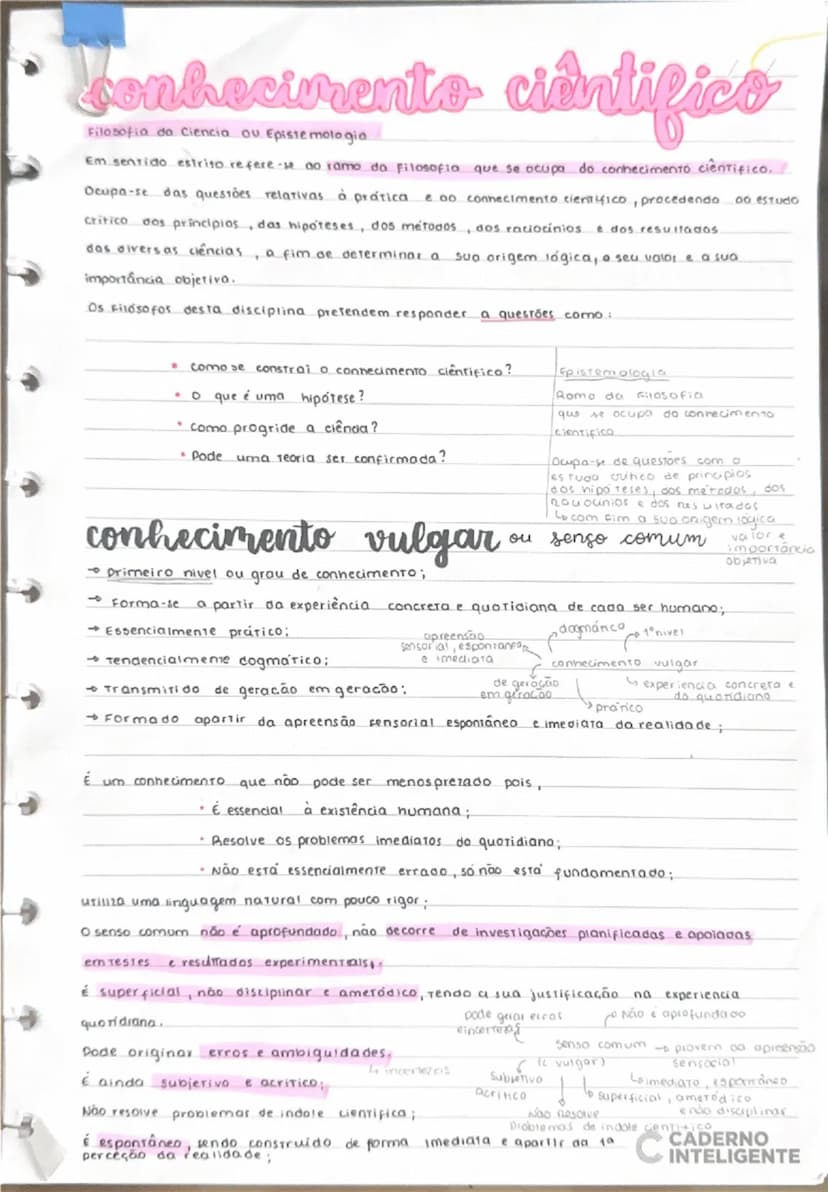 conhecimento ciêntifico
Filosofia da Ciencia ou Epistemologia
Em sentido estrito refere-se ao ramo da filosofia que se ocupa do conhecimento ciêntifico.
Ocupa-se das questões relativas à prática e ao conhecimento cientifico, procedendo ao estudo
critico dos princípios, das hipóteses, dos métodos, dos raciocínios e dos resultados
das diversas ciências, a fim de determinar a sua origem lógica, o seu valor e a sua
importância objetiva.
Os Filósofos desta disciplina pretendem responder a questões como:
• Como se constrai o conhecimento ciêntifico?
• O que é uma hipótese?
• Como progride a ciência?
• Pode uma teoria ser confirmada?
Epistemologia
Ramo da Filosofia
que se ocupa do conhecimento
cientifico
Ocupa-se de questões com o
estudo critico de principios
dos hipóteses, dos métodos, dos
raciocinios e dos resultados
↳ com fim a sua origem lógica
valor e
importância
objetiva
conhecimento vulgar ou senso comum
→ Primeiro nivel ou grau de conhecimento;
→ Forma-se a partir da experiência concreta e quotidiana de cada ser humano;
→ Essencialmente prático;
→ Tendencialmente dogmático;
→ Transmitido de geracão em geracão;
→ Formado apartir da apreensão sensorial espontâneo e imediata da realidade;
apreensão
sensorial, espontanea
e imediata
dogmático
1º nivel
conhecimento vulgar
de geração
em geração
↳ experiencia concreta e
do quotidiano
prático
É um conhecimento que não pode ser menosprezado pois,
• É essencial à existência humana;
• Resolve os problemas imediatos do quotidiano;
• Não está essencialmente errado, só não está fundamentado;
utiliza uma linguagem natural com pouco rigor;
O senso comum não é aprofundado, não decorre de investigações planificadas e apoiadas
em testes e resultados experimentais.
É superficial, não disciplinar e ametódico, tendo a sua justificação na experiencia
quotidiana.
Pode originar erros e ambiguidades.
↳ incertezas
É ainda subjetivo e acrítico;
Não resolve problemas de indole cientifica;
É espontâneo, sendo construído de forma imediata e apartir da 1ª
perceção da realidade;
pode gerar erros
e incertezas
Não é aprofundado
senso comum → provem da apreensão
(c vulgar) sensorial
Subjetivo
Acritico
↳ imediato, espontâneo
↳ superficial, ametódico
e não disciplinar
Não Resolve
Problemas de indole cientifico
CADERNO
INTELIGENTE